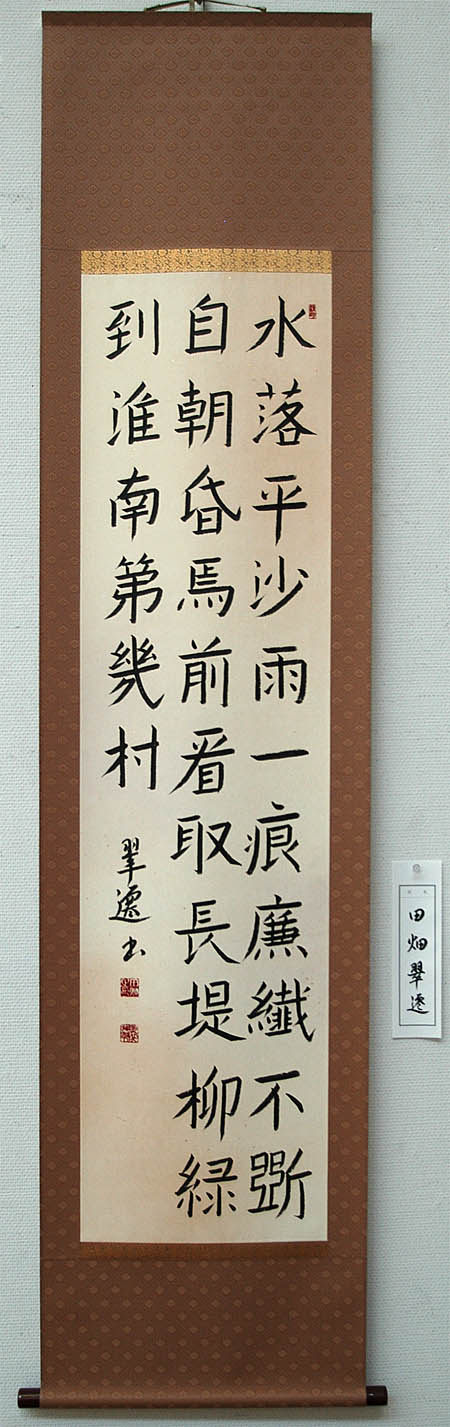 水落平沙雨一痕廉纖不斷
自朝昏馬前看取長堤柳緑
到淮南第幾村
翠遷書
田畑翠遷